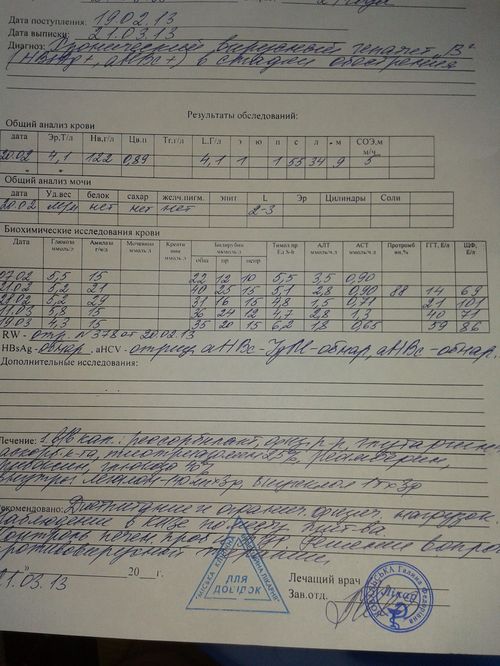 Дата поступления: 19.02.13
Дата выписки: 21.03.13
Диагноз: Хронический вирусный гепатит "В"
(HBsAg+, aHBc+) в стадии обострения
Результаты обследований:
Общий анализ крови
дата Эр,Т/л Нв,г/л Цв.п Тr,г/л L,Г/л э ю п с л м СОЭ,м м/ч
20.02 4,1 122 0,89 4,1 1 1 55 34 9 5
Общий анализ мочи
дата Уд.вес белок сахар желч.пигм. эпит L Эр Цилиндры Соли
20.02 м/м нет нет нет 2-3
Биохимические исследования крови
Дата Глюкоза ммоль/л Амилаза г/ч/л Мочевина ммоль/л Креати нин ммоль/л Билирубин мкмоль/л общ пр непр Тимол.пр Ед S-h АЛТ ммоль/ч.л АСТ ммоль/ч.л Протромб ин,% ГГТ, Е/л ЩФ, Е/л
07.02 5,5 15 22 12 10 5,5 3,5 0,90
21.02 5,2 21 40 25 15 5,1 2,8 0,90 88 14 69
28.02 5,2 29 31 16 15 4,8 1,5 0,71 21 101
11.03 5,8 15 36 24 12 4,7 2,8 1,3 40 71
19.03 4,3 15 35 20 15 6,2 1,8 0,65 59 86
RW - отр. №378 от 20.02.13
HBsAg - обнар., aHCV - отриц. aHBc-IgM-обнар, aHBc-обнар.
Дополнительные исследования:
Лечение: в/в кап.: реосорбилакт, физ. р-р, глутаргин,
аскорб. к-та, тиотриазолин 2,5%,
рибоксин, глюкоза
внутрь:
Рекомендовано: Диетпитание и огранич. физич. нагрузок
Наблюдение в КИЗе по месту жит-ва.
Контроль печен. проб Решение вопроса
противовирусной терапии
21.03.13
20___г.
Лечащий врач
Зав.отд.
ДЛЯ
ДОВІДОК
Галина Федорівна
Лікар